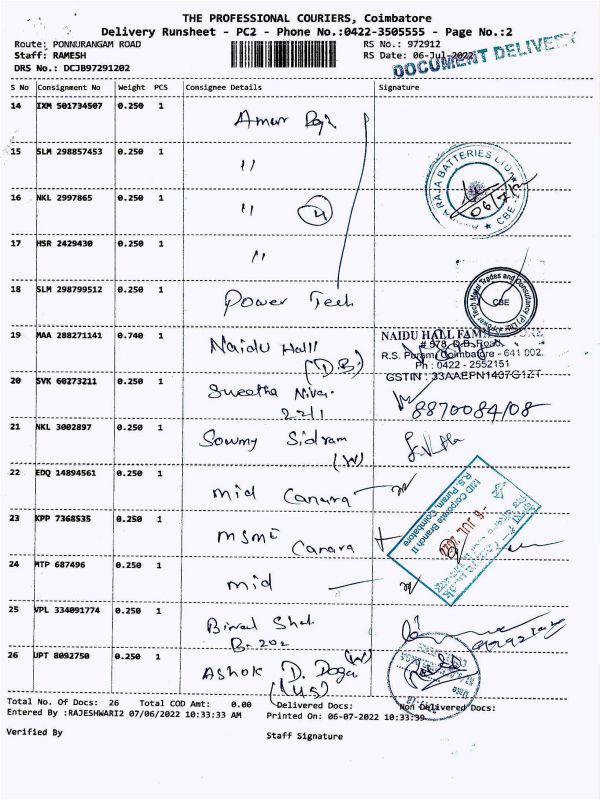 THE PROFESSIONAL COURIERS, Coimbatore
Delivery Runsheet - PC2 - Phone No.:0422-3505555 - Page No.:2
Route: PONNURANGAM ROAD RS No.: 972912
Staff: RAMESH RS Date: 06-Jul-2022
DRS No.: DCJB97291202
DOCUMENT DELIVERY
S No Consignment No Weight PCS Consignee Details Signature
14 IXM 501734507 0.250 1 Amar Raja
15 SLM 298857453 0.250 1 "
RAJA BATTERIES LTD
CBE
06/7/2
16 NKL 2997865 0.250 1 " 4
17 HSR 2429430 0.250 1 "
18 SLM 298799512 0.250 1 Power Tech
Power Tech Metal Trades and Consultancy (P) Ltd
CBE
19 MAA 288271141 0.740 1 Naidu Hall
(D.B)
NAIDU HALL FAMILY STORE
# 578, D.B. Road,
R.S. Puram, Coimbatore - 641 002.
Ph : 0422 - 2552151
GSTIN : 33AAEFN1437G1ZT
20 SVK 60273211 0.250 1 Swetha
22/1
8870084108
21 NKL 3002897 0.250 1 Sowmy Sidram
(W)
22 EDQ 14894561 0.250 1 mid Canara
MID Corporate Branch II
R.S. Puram, Coimbatore
23 KPP 7368535 0.250 1 MSME Canara
24 MTP 687496 0.250 1 mid
25 VPL 334091774 0.250 1 Bimal Shah
B-202
26 UPT 8092750 0.250 1 Ashok D. Doga (W)
Total No. Of Docs: 26 Total COD Amt: 0.00 Delivered Docs: Non Delivered Docs:
Entered By :RAJESHWARI2 07/06/2022 10:33:33 AM Printed On: 06-07-2022 10:33:39
Verified By Staff Signature